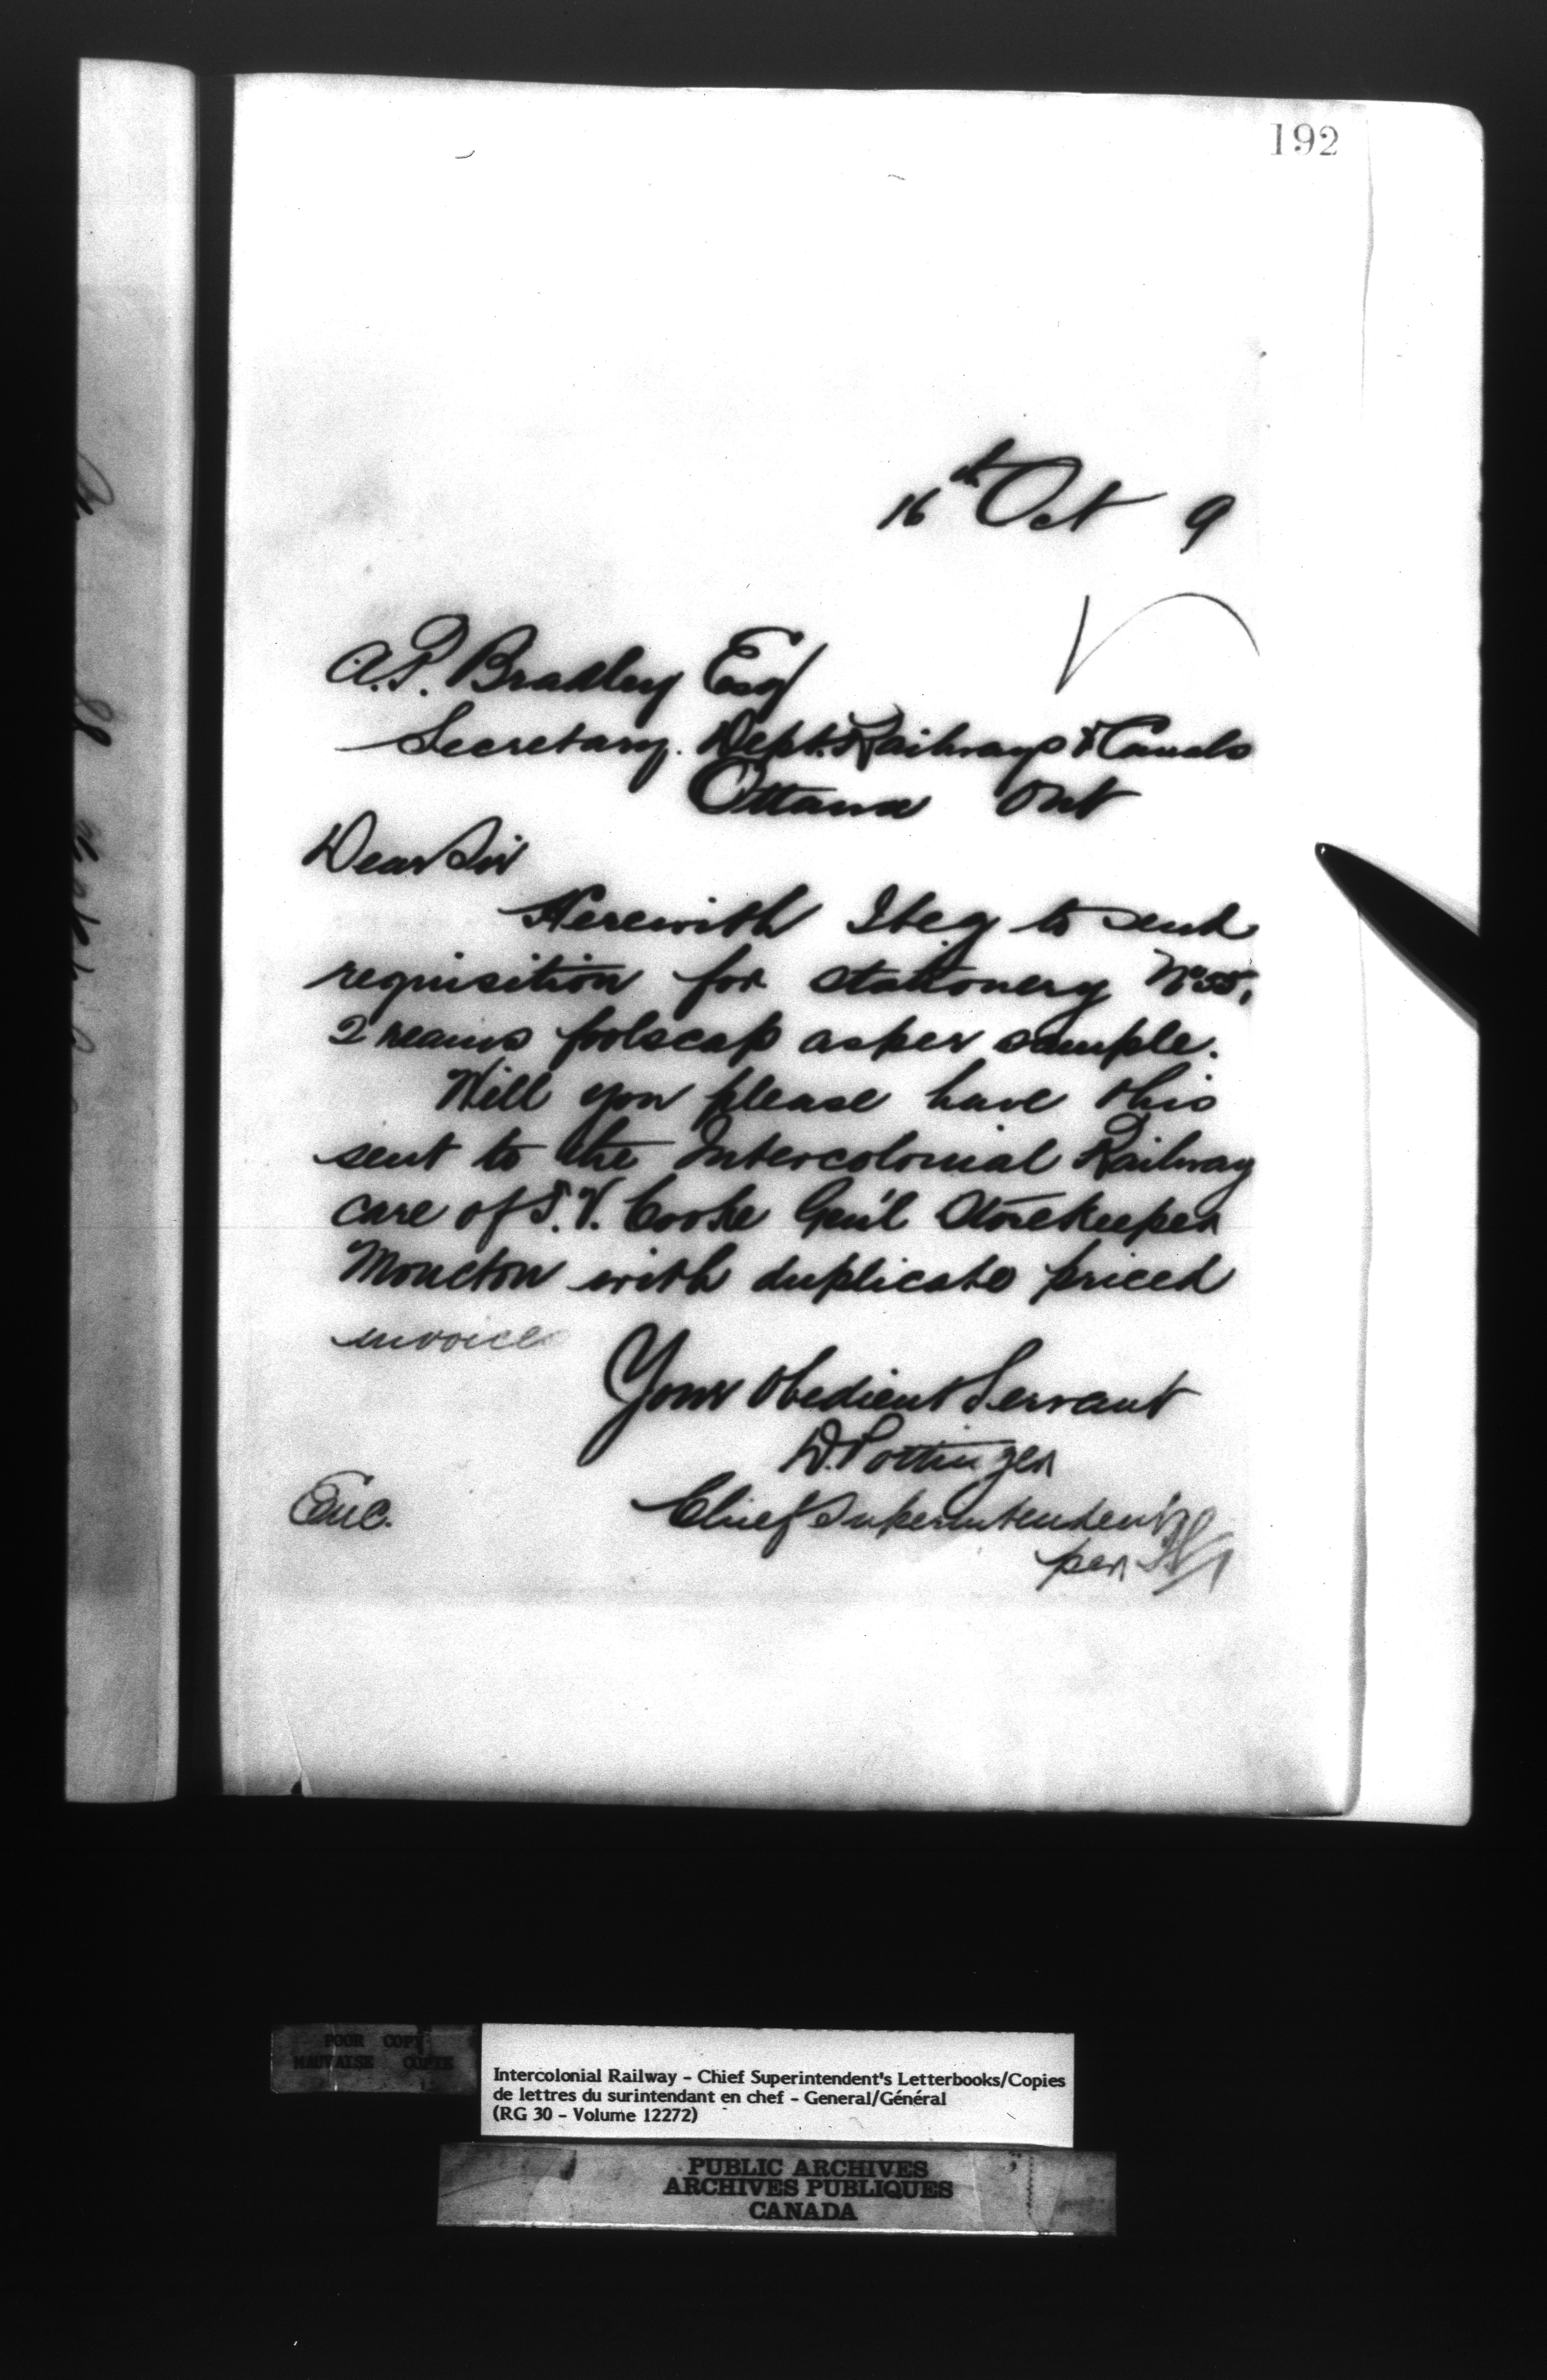 192
16th Oct 9
A.P. Bradley Esq
Secretary. Dept. Railways & Canals
Ottawa Ont
Dear Sir
Herewith I beg to send
requisition for stationery No 55,
2 reams foolscap as per sample.
Will you please have this
sent to the Intercolonial Railway
care of T.V. Cooke Gen'l Storekeeper
Moncton with duplicate priced
invoice
Your Obedient Servant
D. Pottinger
Chief Superintendent
per
Enc.
POOR COPY
MAUVAISE COPIE
Intercolonial Railway - Chief Superintendent's Letterbooks/Copies
de lettres du surintendant en chef - General/Général
(RG 30 - Volume 12272)
PUBLIC ARCHIVES
ARCHIVES PUBLIQUES
CANADA